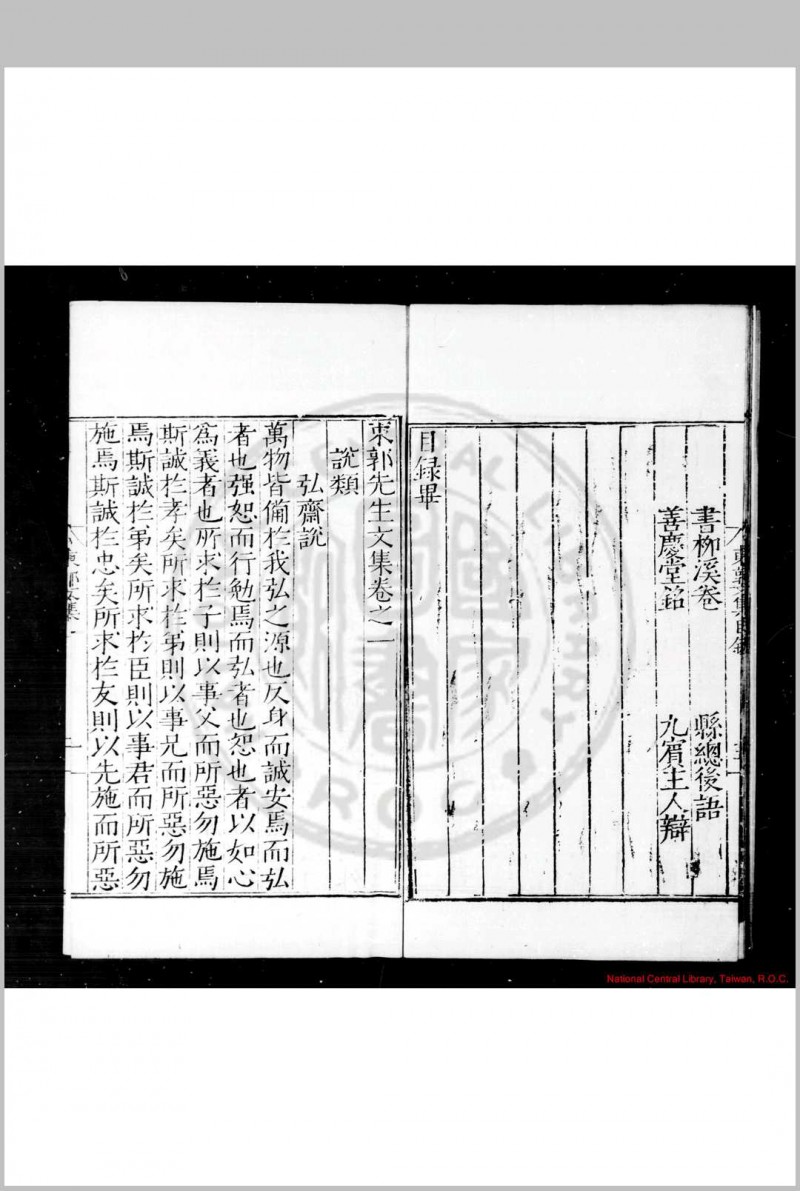 書柳溪卷　縣總後語
善慶堂銘　九賓主人辯
目録畢
東郭先生文集卷之一
說類
弘齋說
萬物皆備於我弘之源也反身而誠安焉而弘
者也强恕而行勉焉而弘者也恕也者以如心
為義者也所求於子則以事父而所惡勿施焉
斯誠於孝矣所求於弟則以事兄而所惡勿施
焉斯誠於弟矣所求於臣則以事君而所惡勿
施焉斯誠於忠矣所求於友則以先施而所惡
東郭文集一
National Central Library, Taiwan, R.O.C.